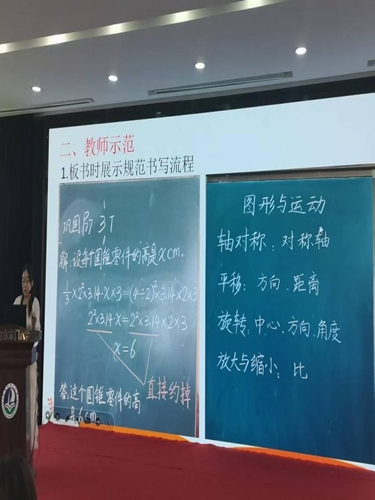 二、教师示范
1.板书时展示规范书写流程
巩固局 3T
解:设每个圆锥零件的高是xcm.
⅓×2²×3.14×x×3=(4÷2)²×3.14×2×3
2²×3.14x=2²×3.14×2×3
x=6
直接约掉
答:这个圆锥零件的高
是6cm
图形与运动
轴对称:对称轴
平移:方向、距离
旋转:中心、方向、角度
放大与缩小:比